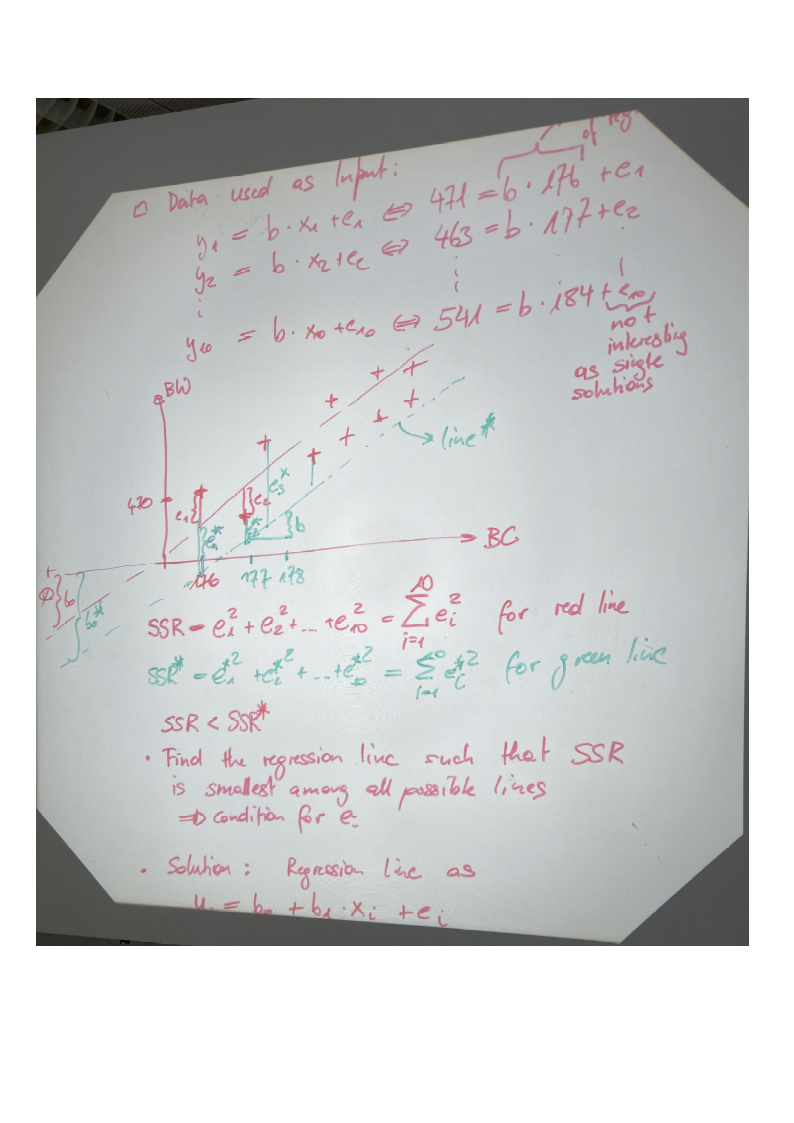 of
□ Data used as Input:
y1 = b · x1 + e1 ⇔ 471 = b · 176 + e1
y2 = b · x2 + e2 ⇔ 463 = b · 177 + e2
y10 = b · x10 + e10 ⇔ 541 = b · 184 + e10
not
interesting
as single
solutions
BW
line*
470
e1
e1*
e2
e2*
e3*
b
BC
176 177 178
b0
b0*
SSR = e1² + e2² + ... + e10² = ∑_{i=1}^{10} ei² for red line
SSR* = e1*² + e2*² + ... + e10*² = ∑_{i=1}^{10} ei*² for green line
SSR < SSR*
· Find the regression line such that SSR
is smallest among all possible lines
⇒ condition for ei
· Solution: Regression line as
yi = b0 + b1 · xi + ei